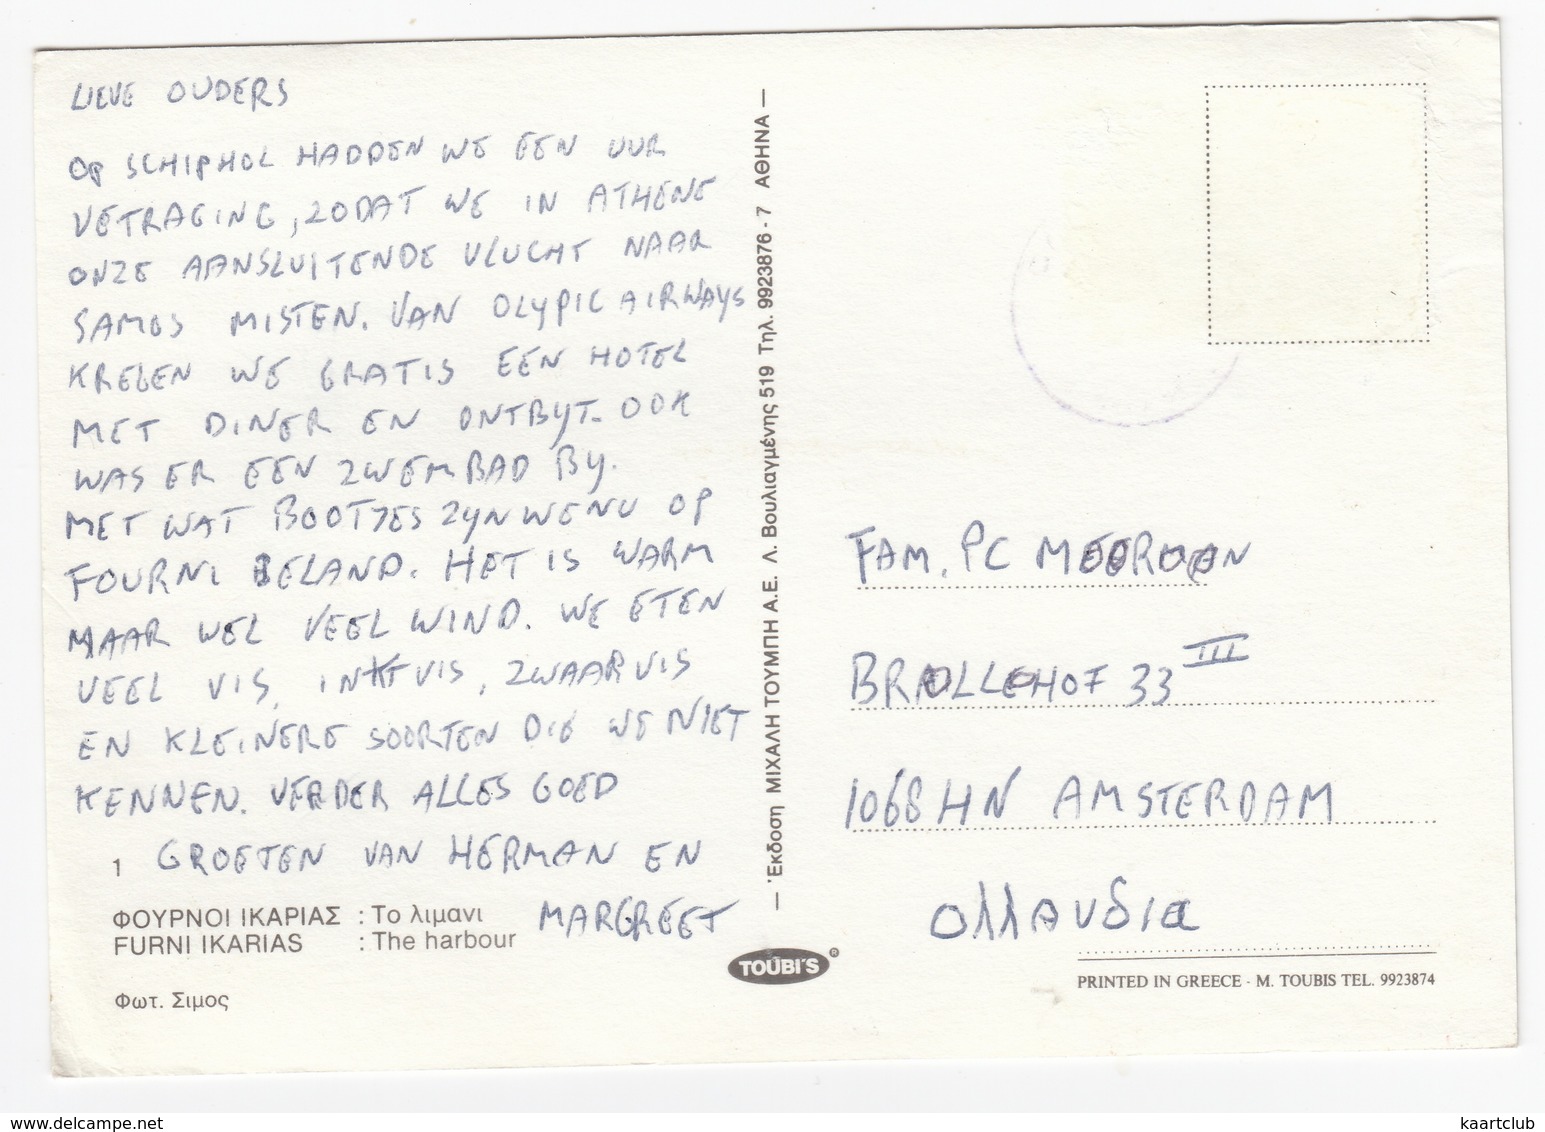 LIEVE OUDERS
OP SCHIPHOL HADDEN WE EEN UUR
VETRAGING, ZODAT WE IN ATHENE
ONZE AANSLUITENDE VLUCHT NAAR
SAMOS MISTEN. VAN OLYPIC AIRWAYS
KREGEN WE GRATIS EEN HOTEL
MET DINER EN ONTBYT. OOK
WAS ER EEN ZWEMBAD BY.
MET WAT BOOTJES ZYN WE NU OP
FOURNI BELAND. HET IS WARM
MAAR WEL VEEL WIND. WE ETEN
VEEL VIS, INKTVIS, ZWAARVIS
EN KLEINERE SOORTEN DIE WE NIET
KENNEN. VERDER ALLES GOED
GROETEN VAN HERMAN EN
MARGREET
1
ΦΟΥΡΝΟΙ ΙΚΑΡΙΑΣ : Το λιμανι
FURNI IKARIAS : The harbour
Φωτ. Σιμος
— Ἔκδοση ΜΙΧΑΛΗ ΤΟΥΜΠΗ Α.Ε. Λ. Βουλιαγμένης 519 Τηλ. 9923876 - 7 ΑΘΗΝΑ —
TOUBI'S ®
FAM. PC
33 III
1068 HN AMSTERDAM
Ολλανδια
PRINTED IN GREECE - M. TOUBIS TEL. 9923874
kaartclub